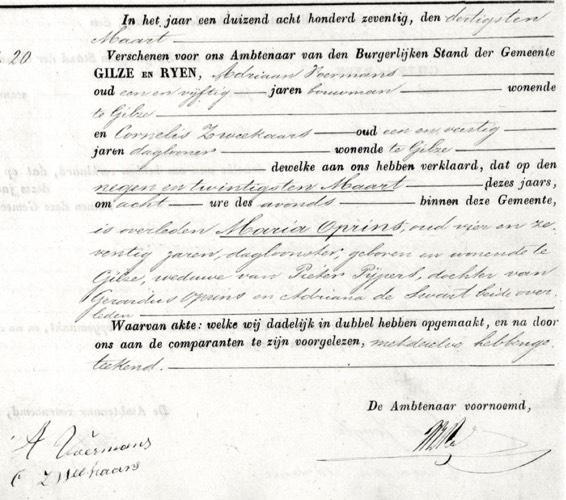 In het jaar een duizend acht honderd zeventig, den dertigsten
Maart
20 Verschenen voor ons Ambtenaar van den Burgerlijken Stand der Gemeente
GILZE EN RYEN, Adriaan Voermans
oud een en vijftig jaren bouwman wonende
te Gilze
en Cornelis Zweekaars oud een en veertig
jaren daglooner wonende te Gilze
dewelke aan ons hebben verklaard, dat op den
negen en twintigsten Maart dezes jaars,
om acht ure des avonds binnen deze Gemeente,
is overleden Maria Oprins, oud vier en ze-
ventig jaren, dagloonster, geboren en wonende te
Gilze, weduwe van Pieter Pijpers, dochter van
Gerardus Oprins en Adriana de Swart beide over-
leden
Waarvan akte: welke wij dadelijk in dubbel hebben opgemaakt, en na door
ons aan de comparanten te zijn voorgelezen, met dezelve hebben ge-
teekend.
De Ambtenaar voornoemd,
A Voermans
C Zweekaars